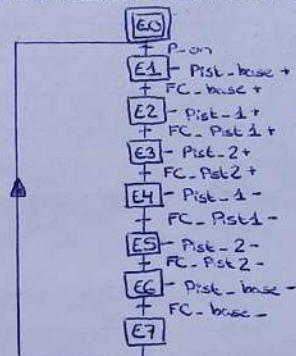 E0
P_on
E1 Pist_base +
FC_base +
E2 Pist_1+
FC_Pist1+
E3 Pist_2+
FC_Pist2+
E4 Pist_1-
FC_Pist1-
E5 Pist_2-
FC_Pist2-
E6 Pist_base-
FC_base-
E7